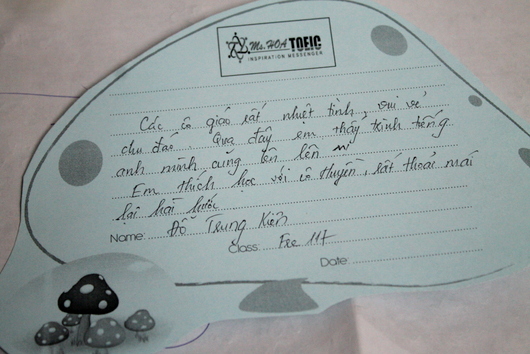 Ms. HOA TOEIC
INSPIRATION MESSENGER
Các cô giáo rất nhiệt tình, vui vẻ
chu đáo. Qua đây em thấy trình tiếng
anh mình cũng lên lên
Em thích học với cô Huyền, rất thoải mái
lại hài hước
Name: Đỗ Trung Kiên
Class: Fee 117
Date: